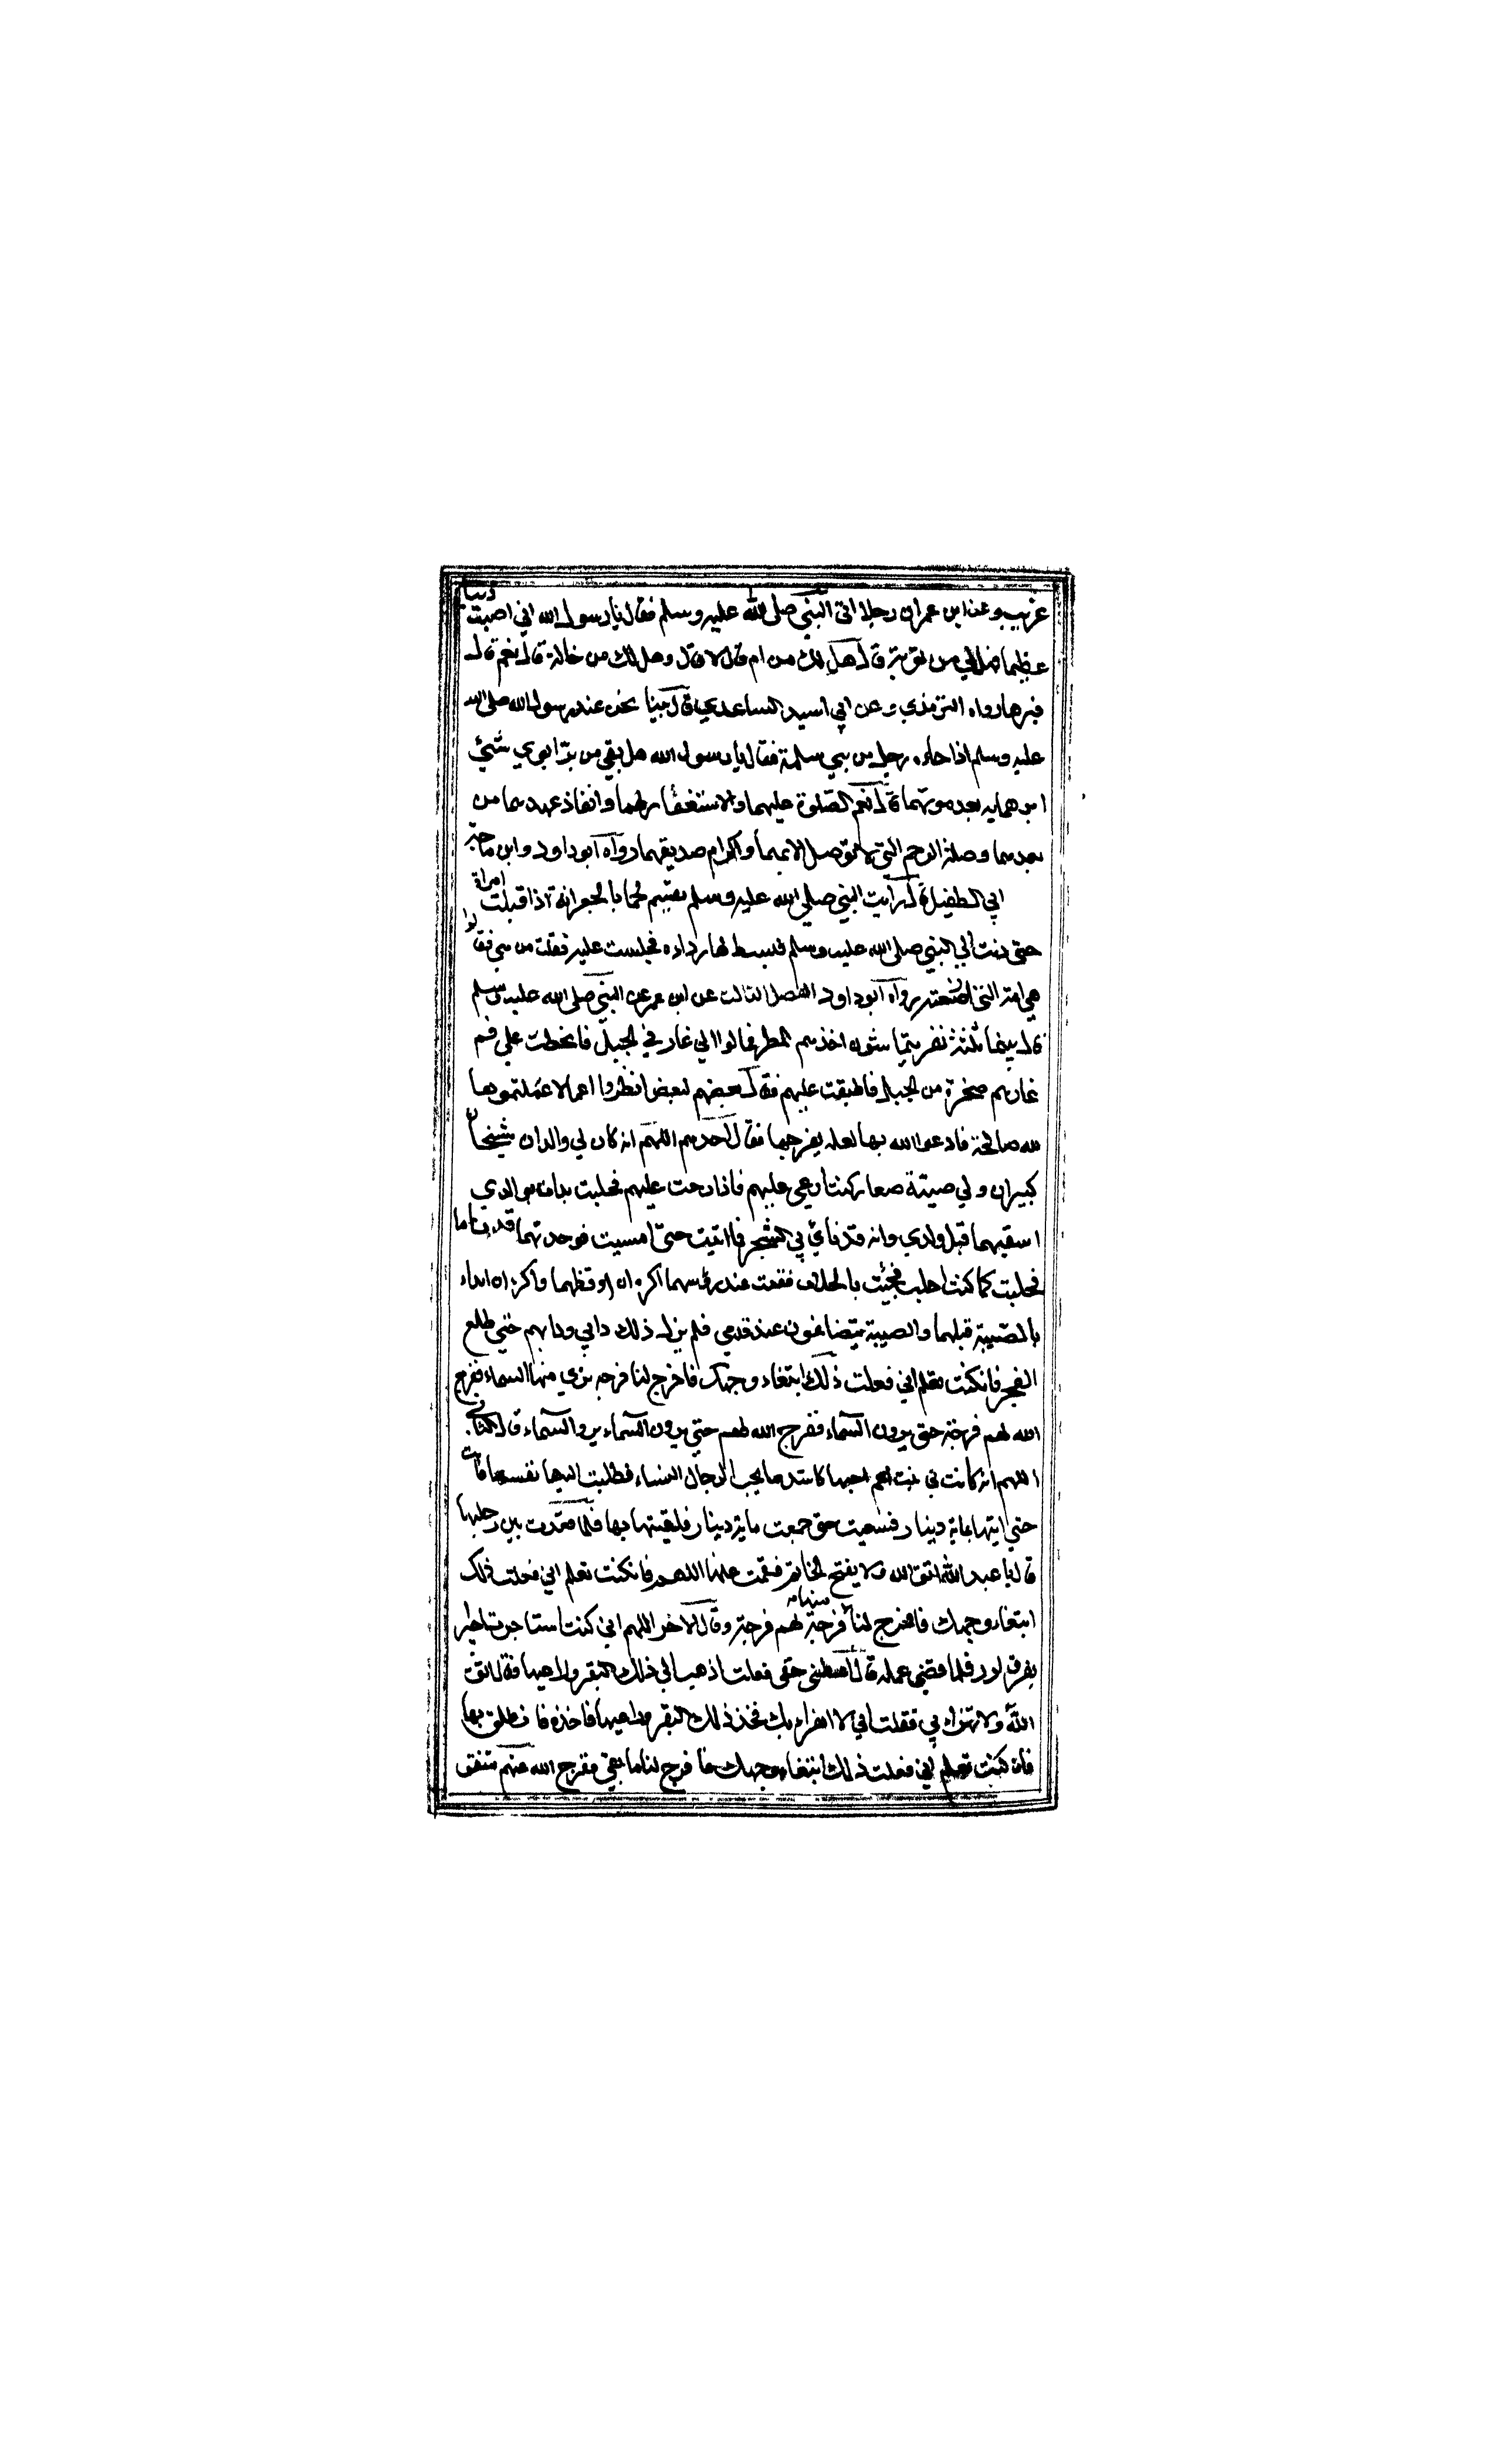 غريب وعن ابن عمران رجلا اتى النبي صلى الله عليه وسلم فقال يا رسول الله اني اصبت ذنبا
عظيما فهل لي من توبة قال هل لك من ام قال لا قال وهل لك من خالة قال نعم قال
فبرها رواه الترمذي وعن ابي اسيد الساعدي قال بينا نحن عند رسول الله صلى الله
عليه وسلم اذا جاءه رجل من بني سلمة فقال يا رسول الله هل بقي من بر ابوي شيئ
ابرهما به بعد موتهما قال نعم الصلوة عليهما والاستغفار لهما وانفاذ عهدهما من
بعدهما وصلة الرحم التي لا توصل الا بهما واكرام صديقهما رواه ابو داود وابن ماجة
ابي الطفيل قال رايت النبي صلي الله عليه وسلم يقسم لحما بالجعرانة اذا قبلت امراة
حتى دنت الي النبي صلى الله عليه وسلم فبسط لها رداءه فجلست عليه فقلت من هي فقالوا
هي امه التي ارضعته رواه ابو داود الفصل الثالث عن ابن عمر عن النبي صلى الله عليه وسلم
قال بينما ثلثة نفر يتماشون اخذهم المطر فمالوا الي غار في الجبل فانحطت علي فم
غارهم صخرة من الجبل فاطبقت عليهم فقال بعضهم لبعض انظروا اعمالا عملتموها
لله صالحة فادعوا الله بها لعله يفرجها فقال احدهم اللهم انه كان لي والدان شيخان
كبيران ولي صبية صغار كنت ارعي عليهم فاذا رحت عليهم فحلبت بدات بوالدي
اسقيهما قبل ولدي وانه قد نائ بي الشجر فما اتيت حتى امسيت فوجدتهما قد ناما
فحلبت كما كنت احلب فجئت بالحلاب فقمت عند رؤسهما اكره ان اوقظهما واكره ان ابداء
بالصبية قبلهما والصبية يتضاغون عند قدمي فلم يزل ذلك دابي ودابهم حتي طلع
الفجر فان كنت تعلم اني فعلت ذلك ابتغاء وجهك فافرج لنا فرجه نري منها السماء ففرج
الله لهم فرجة حتى يرون السماء ففرج الله لهم حتي يرون السماء يرو السماء قال الثاني
اللهم انه كانت لي بنت عم احبها كاشد ما يحب الرجال النساء فطلبت اليها نفسها فابت
حتي اتيتها بماية دينار فسعيت حتى جمعت ماية دينار فلقيتها بها فلما قعدت بين رجليها
قال يا عبد الله اتق الله ولا يفتح الخاتم فقمت عنها اللهم فان كنت تعلم اني فعلت ذلك
ابتغاء وجهك فافرج لنا منها فرجة لهم فرجة وقال الاخر اللهم اني كنت استاجرت اجيرا
بفرق ارز فلما قضي عمله قال اعطني حقي فعلت اذهب الي ذلك البقر وراعيها فقال اتق
الله ولا تهزاء بي فقلت اني لا اهزاء بك فخذ ذلك البقر وراعيها فاخذه فانطلق بها
فان كنت تعلم اني فعلت ذلك ابتغاء وجهك فافرج لنا ما بقي ففرج الله عنهم متفق